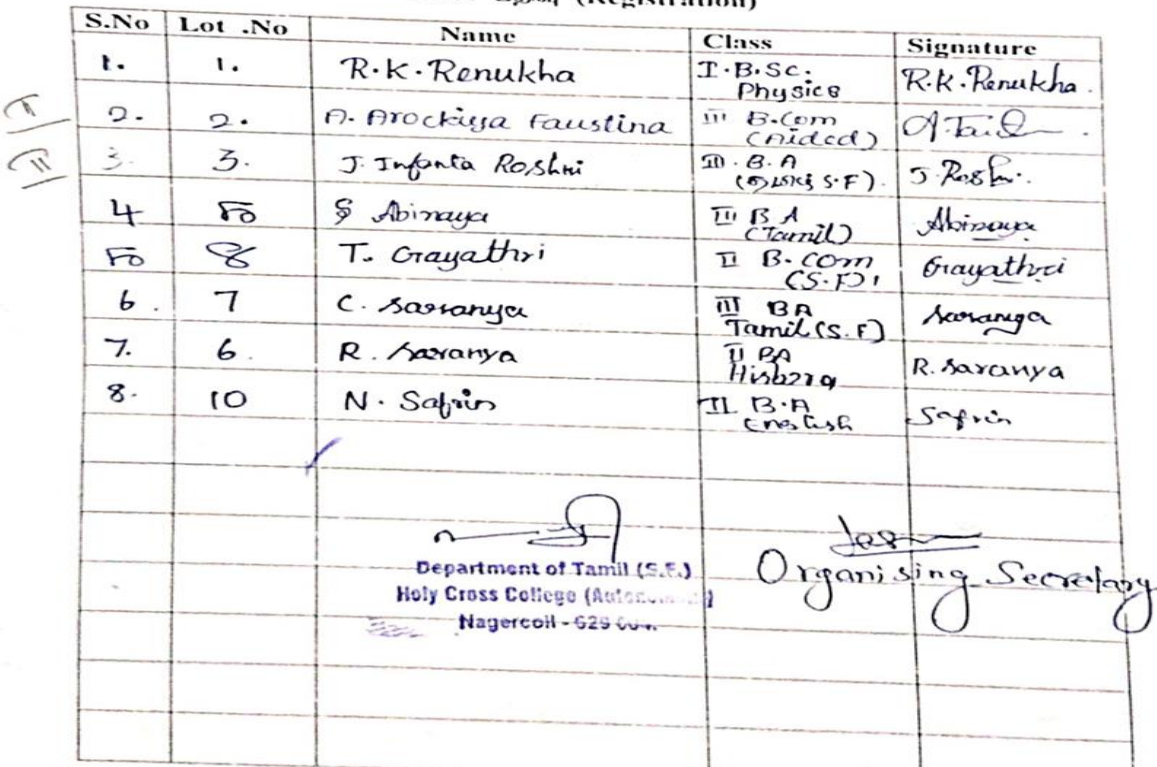 (Registration)
S.No Lot .No Name Class Signature
1. 1. R.K.Renukha I.B.Sc. Physics R.K.Renukha.
II 2. 2. A. Arockiya Faustina III B.Com (Aided)
III 3. 3. J. Infanta Roshni III. B.A (தமிழ் S.F). J.Roshni.
4 5 S Abinaya III B A (Tamil) Abinaya
5 8 T. Gayathri II B.com (S.F) Gayathri
6. 7 C. Saranya III BA Tamil (S.F) Saranya
7. 6. R. Saranya II BA History R. Saranya
8. 10 N. Safrin II B.A English Safrin
Department of Tamil (S.F.)
Holy Cross College
Nagercoil - 629
Organising Secretary